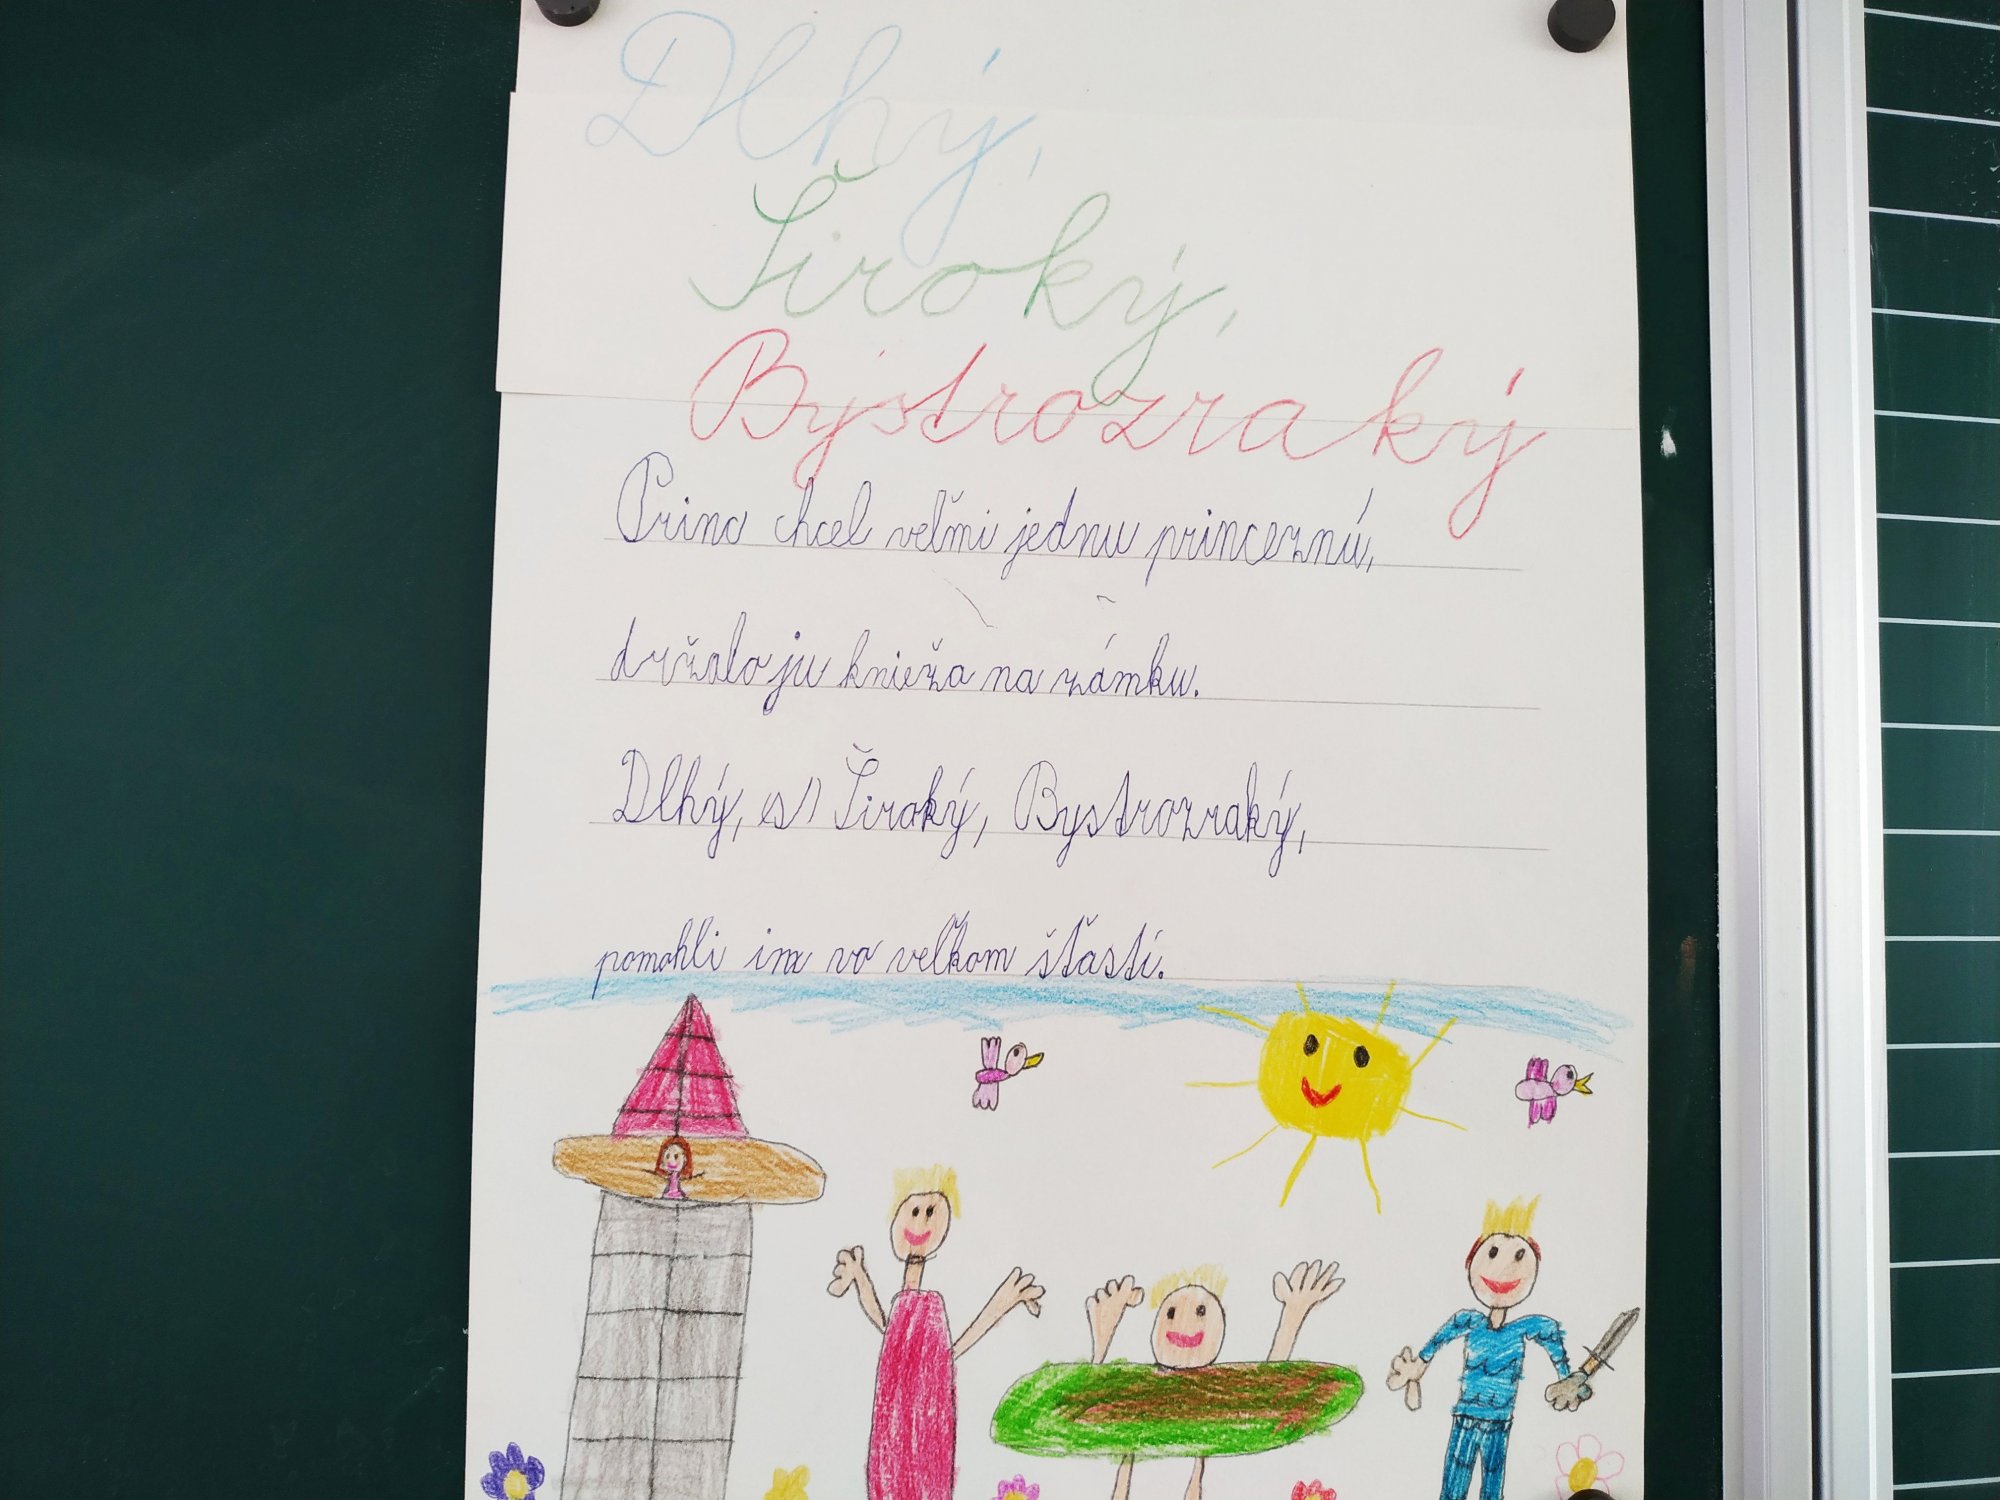 Dlhý,
Široký,
Bystrozraký
Princ chcel veľmi jednu princeznú,
držalo ju knieža na zámku.
Dlhý, (s) Široký, Bystrozraký,
pomohli im vo veľkom šťastí.